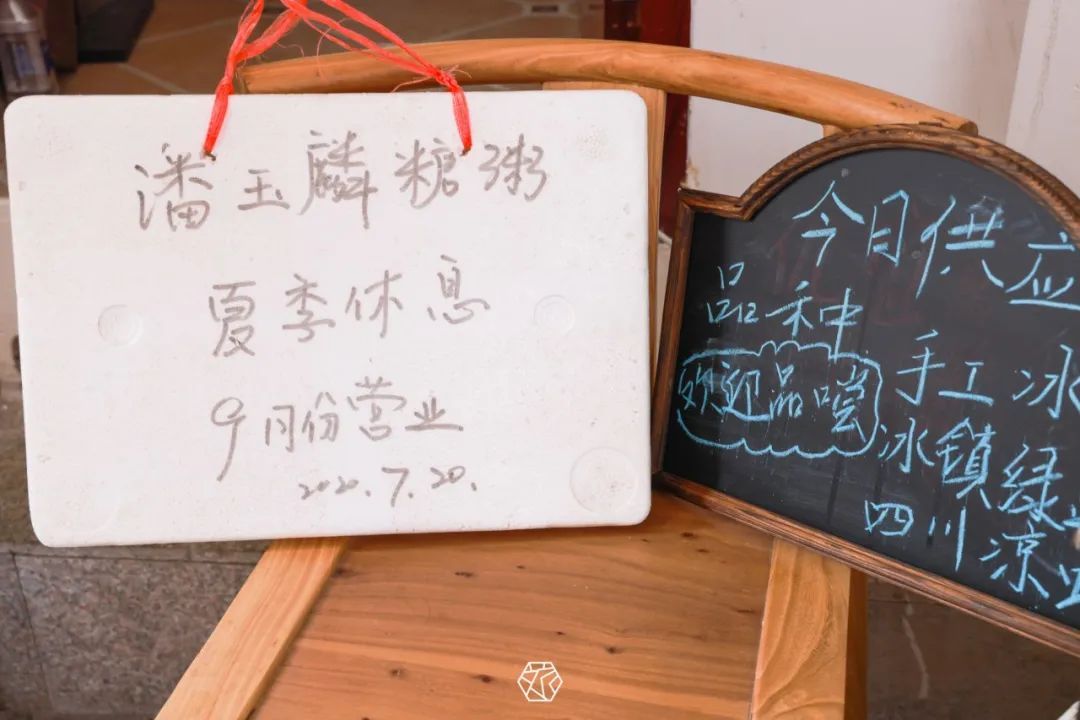 潘玉麟糖粥
夏季休息
9月份营业
2020.7.20.
今日供应
品种
欢迎品尝
手工冰
冰镇绿
四川凉